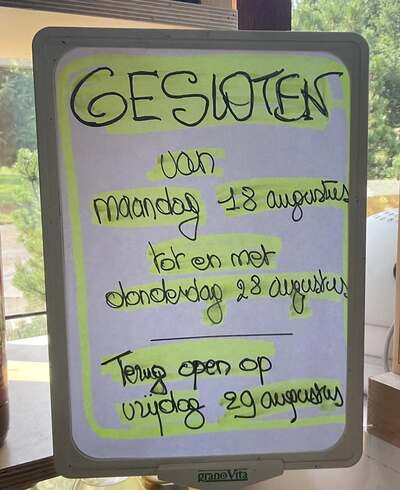 GESLOTEN
van
maandag 18 augustus
tot en met
donderdag 28 augustus
Terug open op
vrijdag 29 augustus
granoVita